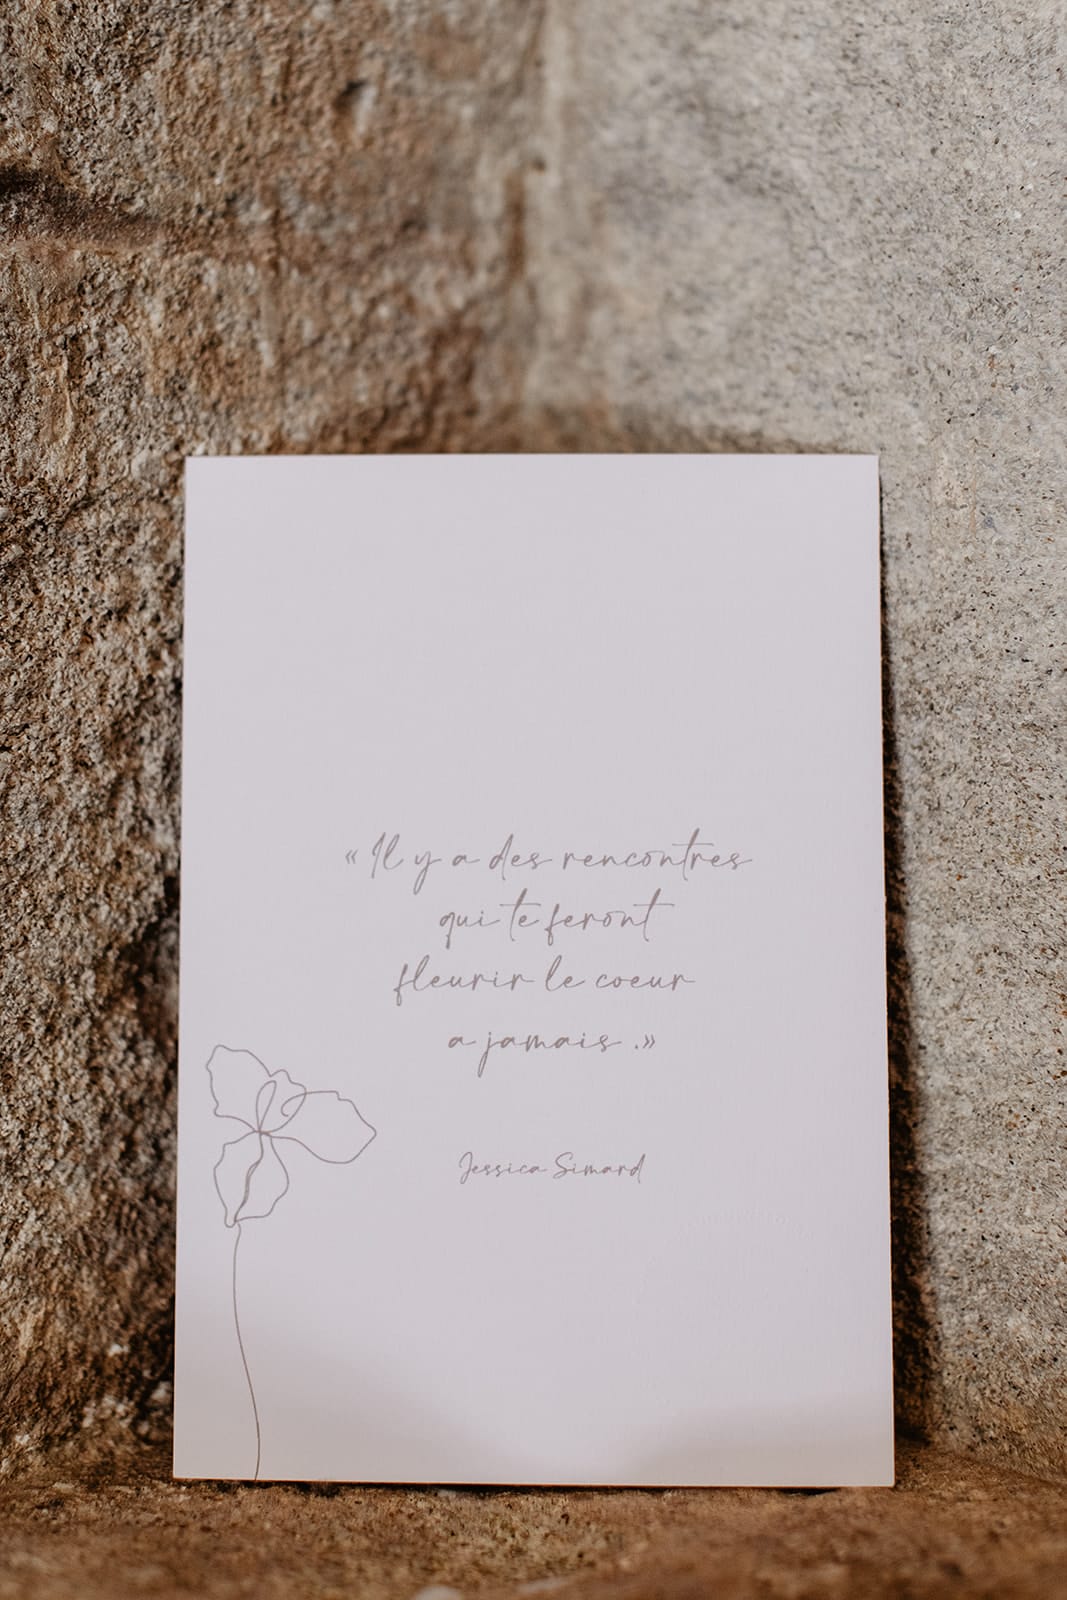 « Il y a des rencontres
qui te feront
fleurir le coeur
a jamais .»
Jessica Simard